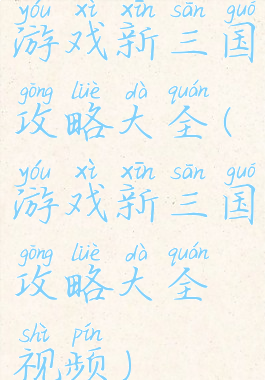 yóu xì xīn sān guó
游戏新三国
gōng lüè dà quán
攻略大全(
yóu xì xīn sān guó
游戏新三国
gōng lüè dà quán
攻略大全
shì pín
视频)